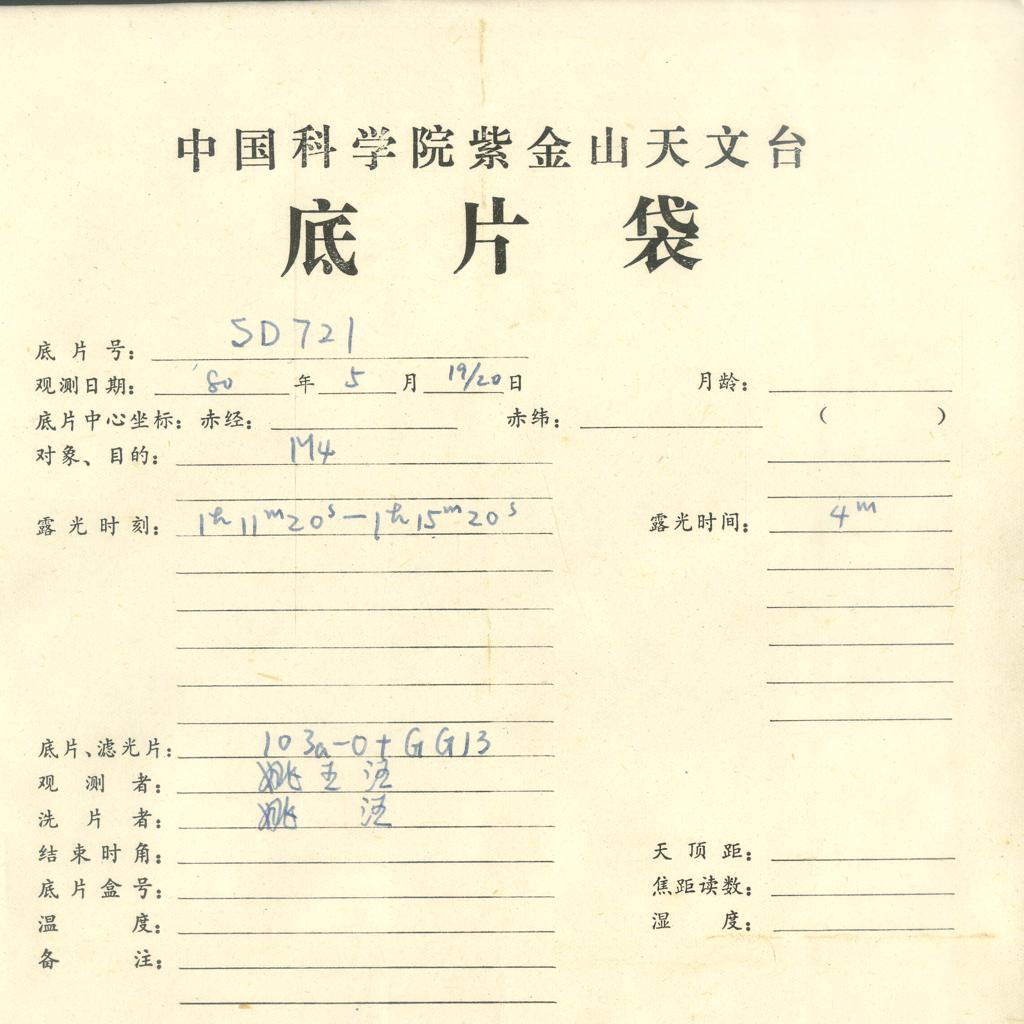 中国科学院紫金山天文台
底片袋
底片号： SD721
观测日期： '80 年 5 月 19/20 日 月龄：
底片中心坐标：赤经： 赤纬： （ ）
对象、目的： M4
露光时刻： 1h 11m 20s — 1h 15m 20s 露光时间： 4m
底片、滤光片： 103a-O+GG13
观测者： 姚 王 汪
洗片者： 姚 汪
结束时角： 天顶距：
底片盒号： 焦距读数：
温度： 湿度：
备注：